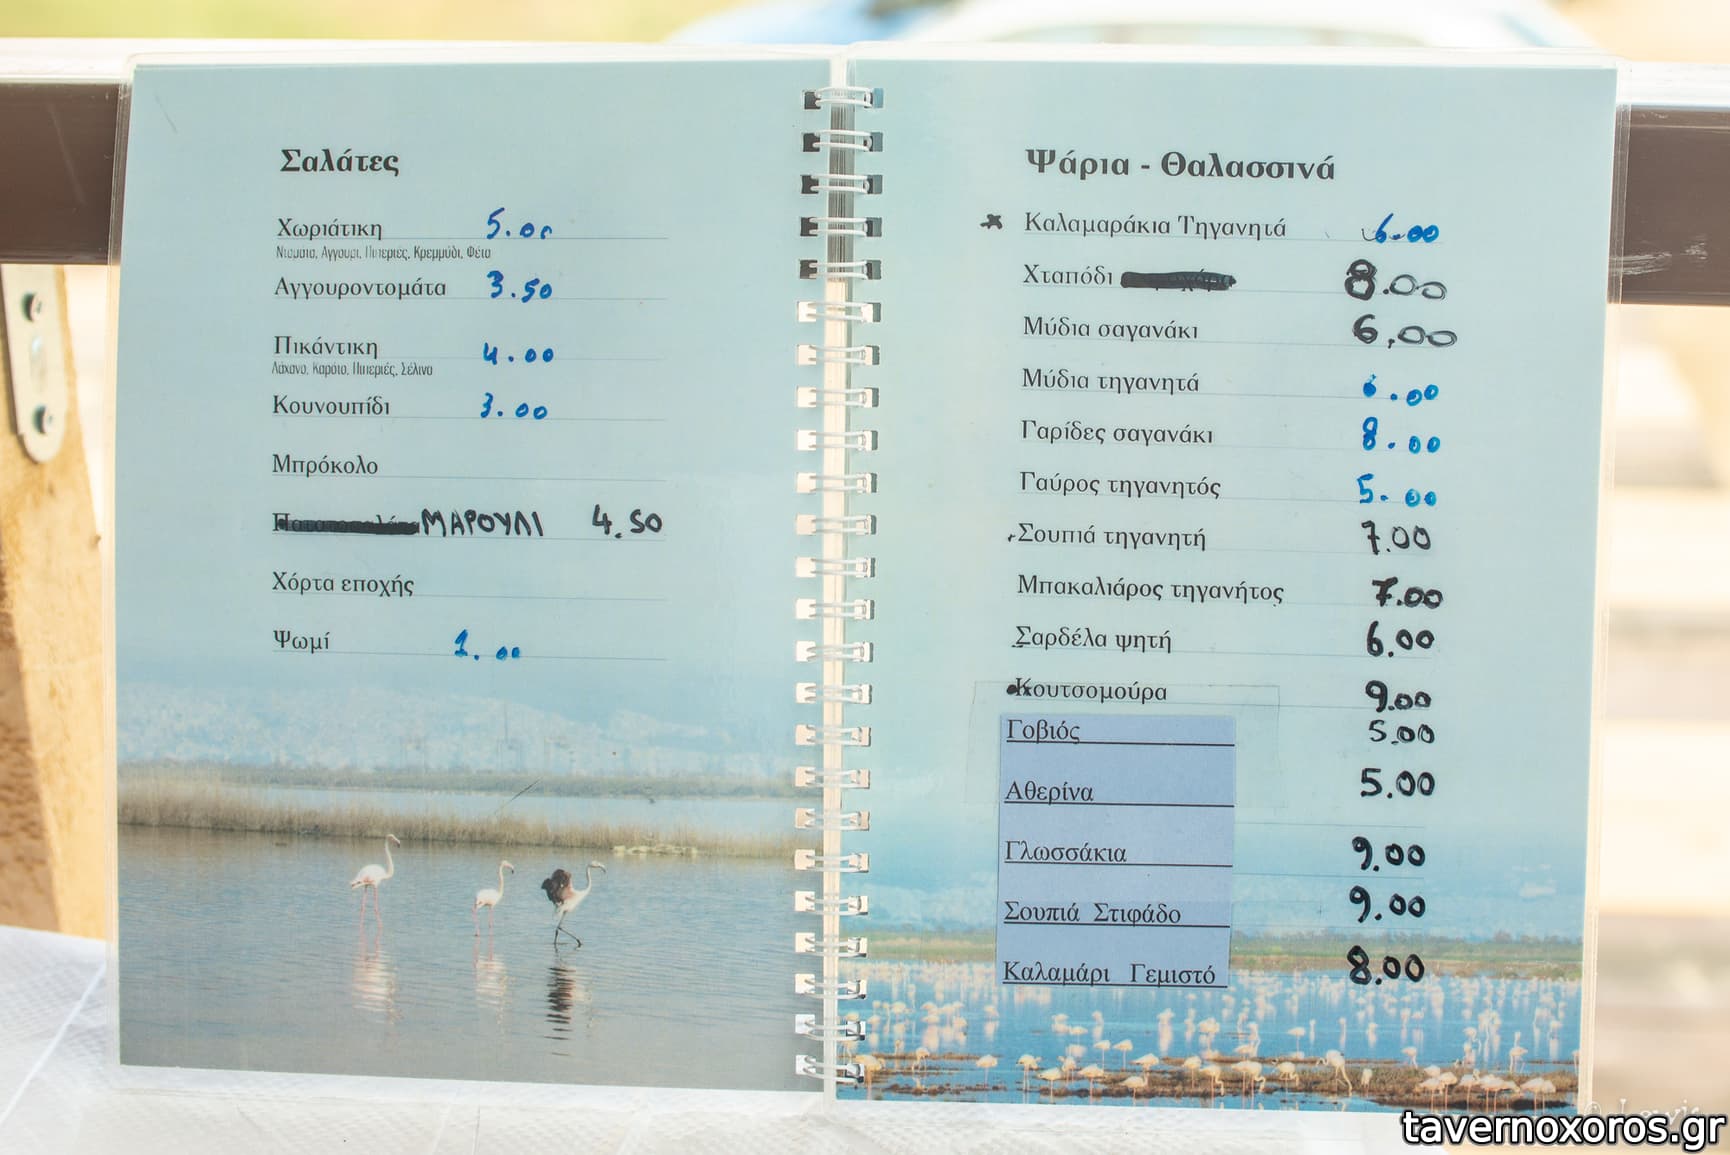 Σαλάτες
Χωριάτικη 5.00
Ντομάτα, Αγγουρι, Πιπεριές, Κρεμμύδι, Φέτα
Αγγουροντομάτα 3.50
Πικάντικη 4.00
Λάχανο, Καρότο, Πιπεριές, Σέλινο
Κουνουπίδι 3.00
Μπρόκολο
ΜΑΡΟΥΛΙ 4.50
Χόρτα εποχής
Ψωμί 1.00
Ψάρια - Θαλασσινά
Καλαμαράκια Τηγανητά 6.00
Χταπόδι 8.00
Μύδια σαγανάκι 6,00
Μύδια τηγανητά
Γαρίδες σαγανάκι 8.00
Γαύρος τηγανητός 5.00
Σουπιά τηγανητή 7.00
Μπακαλιάρος τηγανήτος 7.00
Σαρδέλα ψητή 6.00
Κουτσομούρα 9.00
Γοβιός 5.00
Αθερίνα 5.00
Γλωσσάκια 9.00
Σουπιά Στιφάδο 9.00
Καλαμάρι Γεμιστό 8.00
tavernoxoros.gr